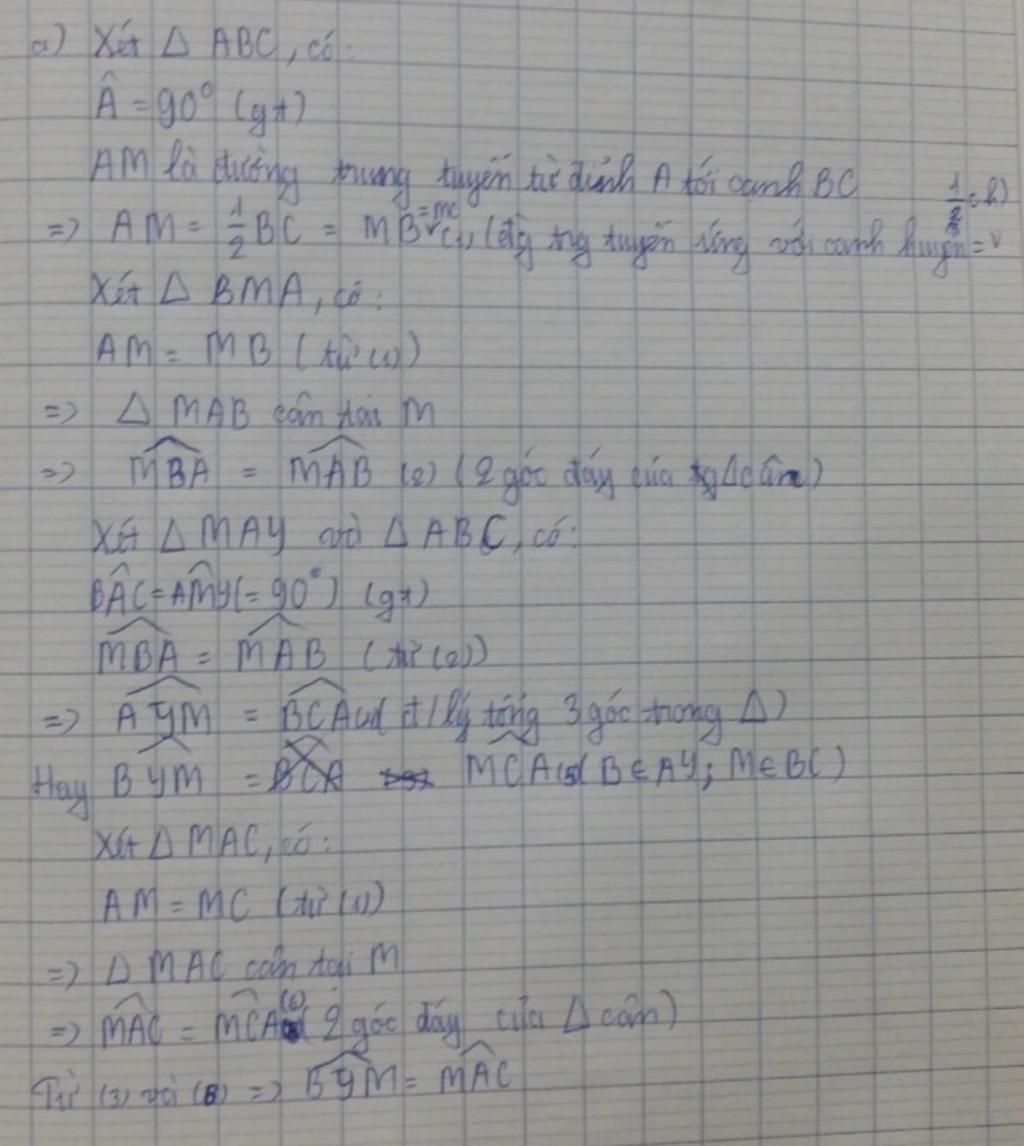 a) Xét Δ ABC, có:
Â = 90° (gt)
AM là đường trung tuyến từ đỉnh A tới cạnh BC
=> AM = 1/2 BC = MB = MC (1) (đg trg tuyến ứng với cạnh huyền = 1/2 ch)
Xét Δ BMA, có:
AM = MB (từ (1))
=> Δ MAB cân tại M
=> MBA = MAB (2) (2 góc đáy của Δ cân)
Xét Δ MAY và Δ ABC, có:
BÂC = AM̂Y (= 90°) (gt)
MBA = MAB (từ (2))
=> AYM = BCA (đ/lý tổng 3 góc trong Δ)
Hay BYM = MCA (B ∈ AY; M ∈ BC)
Xét Δ MAC, có:
AM = MC (từ (1))
=> Δ MAC cân tại M
=> MAC = MCA (2 góc đáy của Δ cân)
Từ (3) và => BYM = MAC